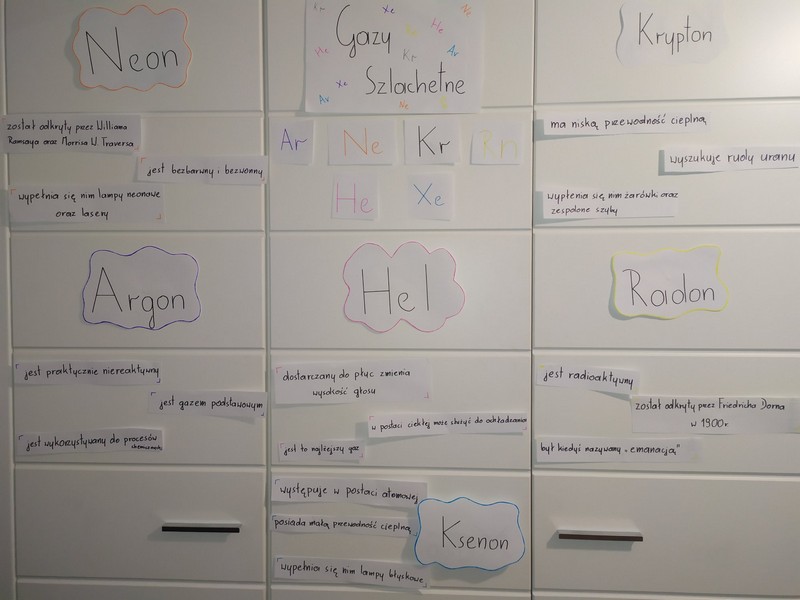 Neon
został odkryty przez Williama
Ramsaya oraz Morrisa W. Traversa
jest bezbarwny i bezwonny
wypełnia się nim lampy neonowe
oraz lasery
Kr
Xe
Ne
He
Gazy
He
Kr
Ar
Xe
Szlachetne
Ar
Ne
Ar
Ne
Kr
Rn
He
Xe
Krypton
ma niską przewodność cieplną
wyszukuje rudy uranu
wypłenia się nim żarówki oraz
zespolone szyby
Argon
jest praktycznie niereaktywny
jest gazem podstawowym
jest wykorzystywany do procesów
Hel
dostarczany do płuc zmienia
wysokość głosu
w postaci ciekłej może służyć do ochładzania
jest to najlżejszy gaz
Radon
jest radioaktywny
został odkryty przez Friedricha Dorna
w 1900r.
był kiedyś nazywany "emanacją"
występuje w postaci atomowej
posiada małą przewodność cieplną
wypełnia się nim lampy błyskowe
Ksenon